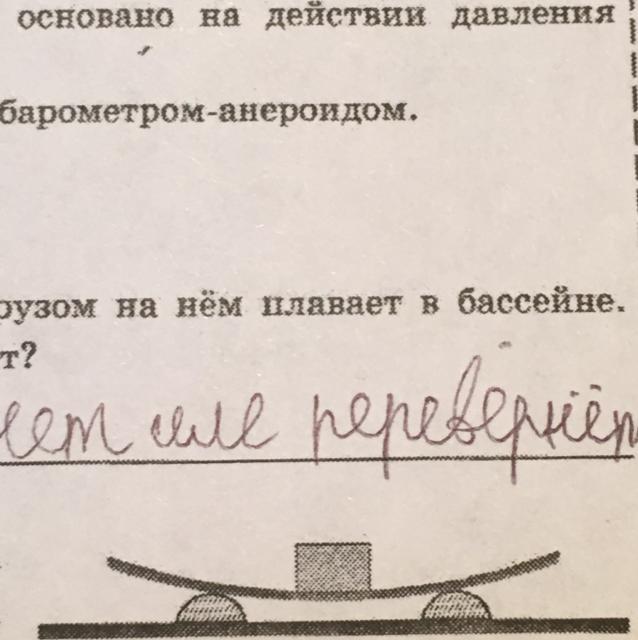 основано на действии давления
барометром-анероидом.
рузом на нём плавает в бассейне.
т?
или перевернёт